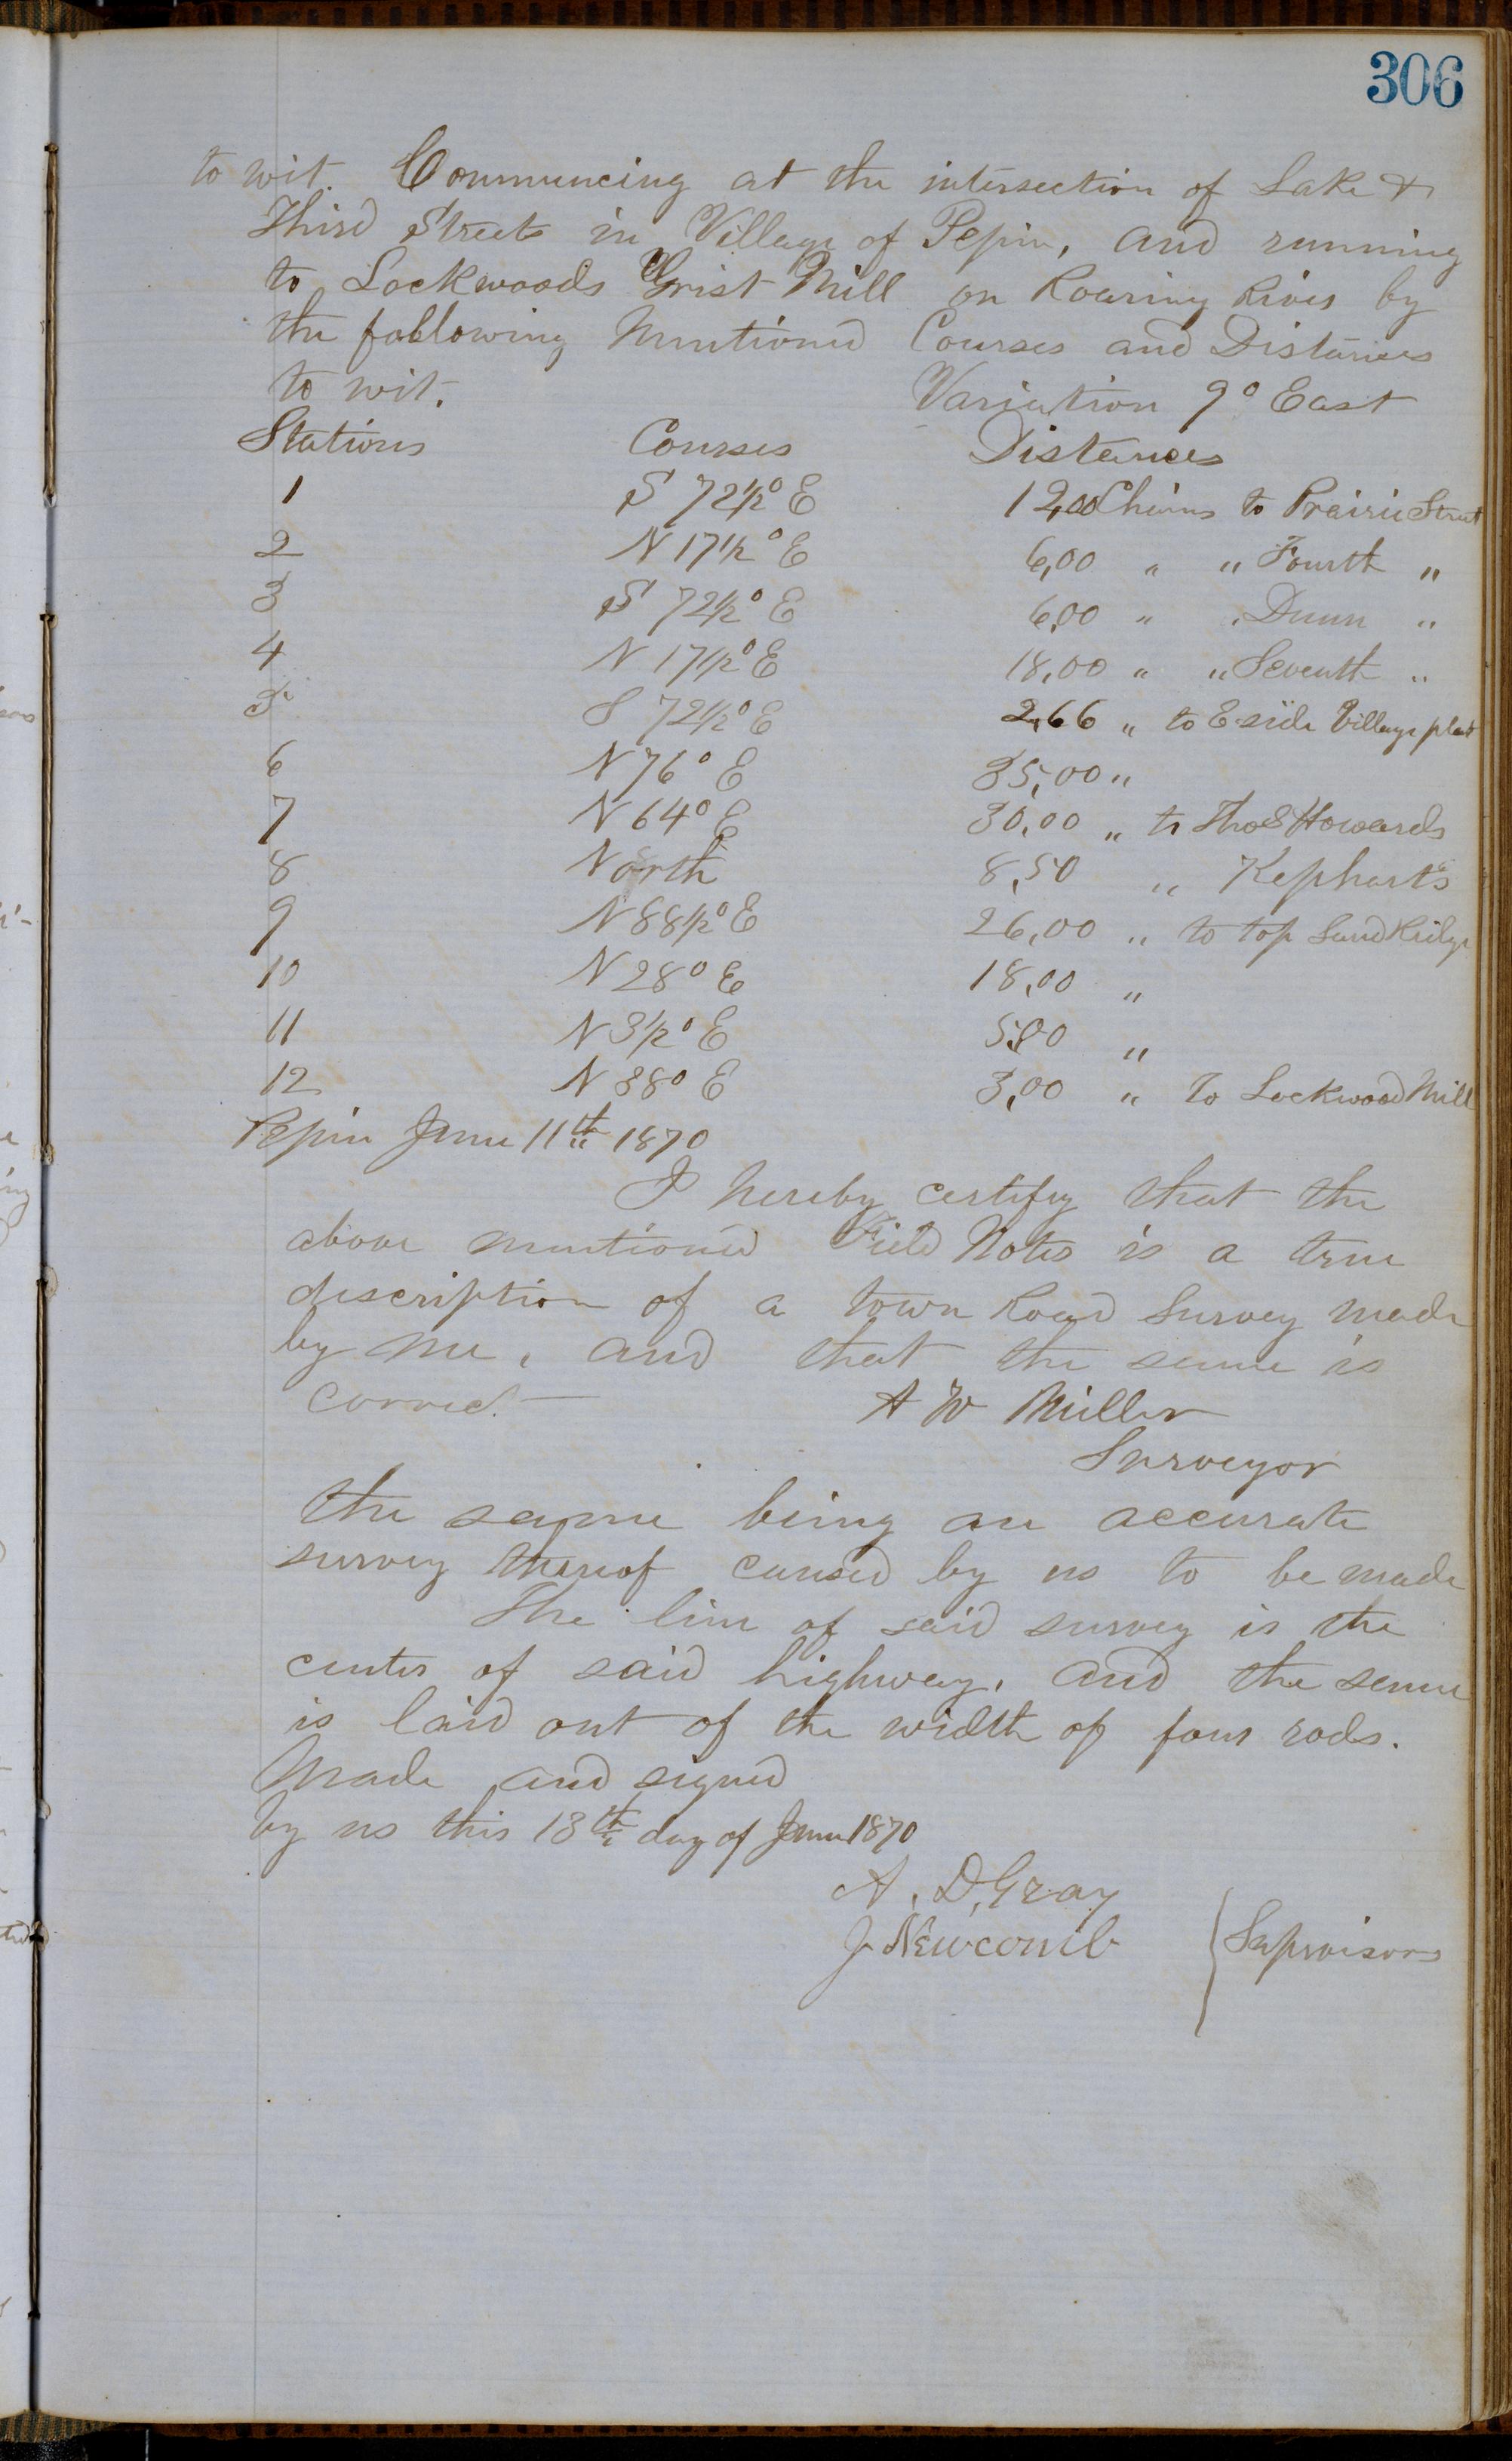 306
to wit. Commencing at the intersection of Lake &
Third Streets in Village of Pepin, and running
to Lockwoods Grist Mill on Roaring River by
the following Mentioned Courses and Distances
to wit. Variation 9° East
Stations Courses Distances
1 S 72½° E 12,00 Chains to Prairie Street
2 N 17½° E 6,00 " " Fourth "
3 S 72½° E 6,00 " " Dunn "
4 N 17½° E 18,00 " " Seventh "
5 S 72½° E 2,66 " to E side Village plat
6 N 76° E 35,00 "
7 N 64° E 30,00 " to Thos Howards
8 North 8,50 " Kepharts
9 N 88½° E 26,00 " to top Sand Ridge
10 N 28° E 18,00 "
11 N 3½° E "
12 N 38° E 3,00 " To Lockwood Mill
Pepin June 11th 1870
I hereby certify that the
above mentioned Field Notes is a true
description of a town Road Survey made
by me, and that the same is
correct. A W Miller
Surveyor
the same being an accurate
survey thereof caused by us to be made
The line of said survey is the
center of said highway, and the same
is laid out of the width of four rods.
Made and signed
by us this 13th day of June 1870
A. D. Gray
J Newcomb Supervisors